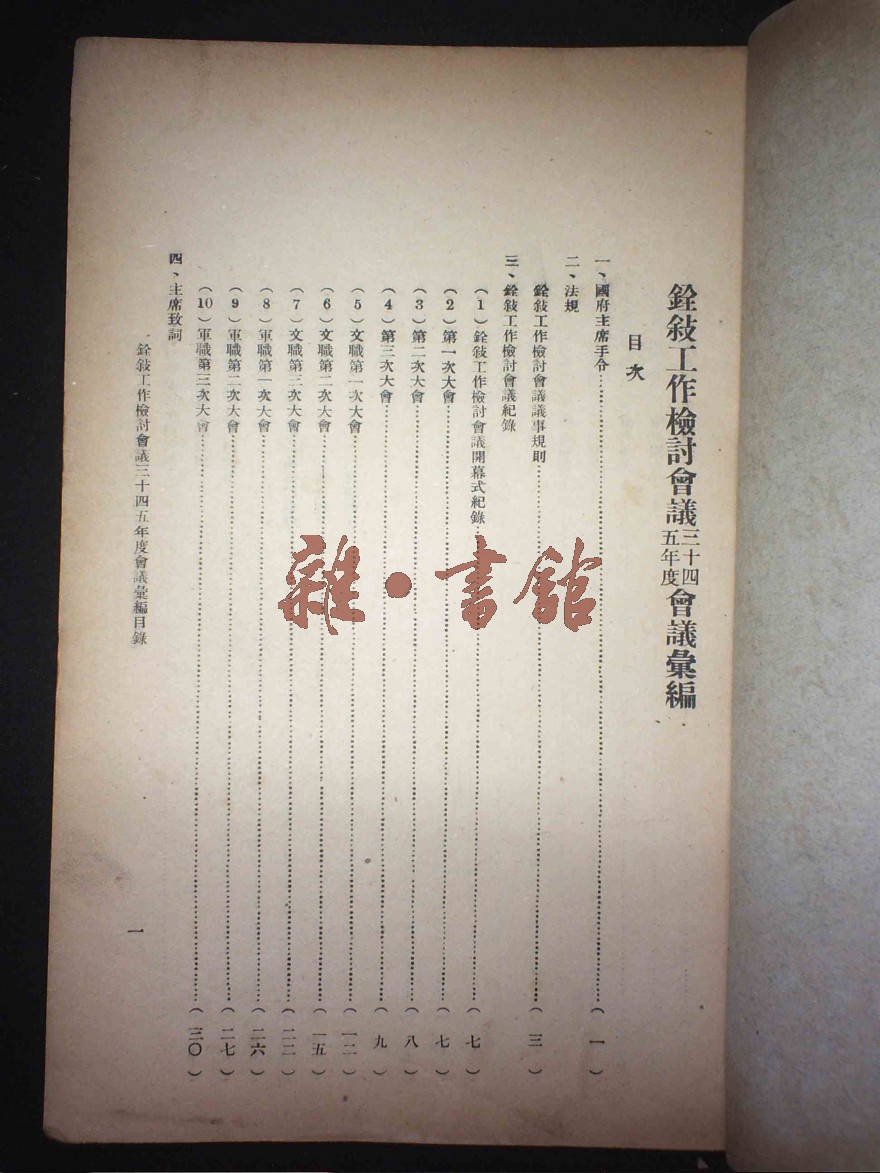 銓敍工作檢討會議三十四五年度會議彙編
目次
一、國府主席手令……(一)
二、法規
銓敍工作檢討會議議事規則……(三)
三、銓敍工作檢討會議紀錄
(1)銓敍工作檢討會議開幕式紀錄……(七)
(2)第一次大會……(七)
(3)第二次大會……(八)
(4)第三次大會……(九)
(5)文職第一次大會……(一二)
(6)文職第二次大會……(一五)
(7)文職第三次大會……(二二)
(8)軍職第一次大會……(二六)
(9)軍職第二次大會……(二七)
(10)軍職第三次大會……(三〇)
四、主席致詞
銓敍工作檢討會議三十四五年度會議彙編目錄
一
雜·書館